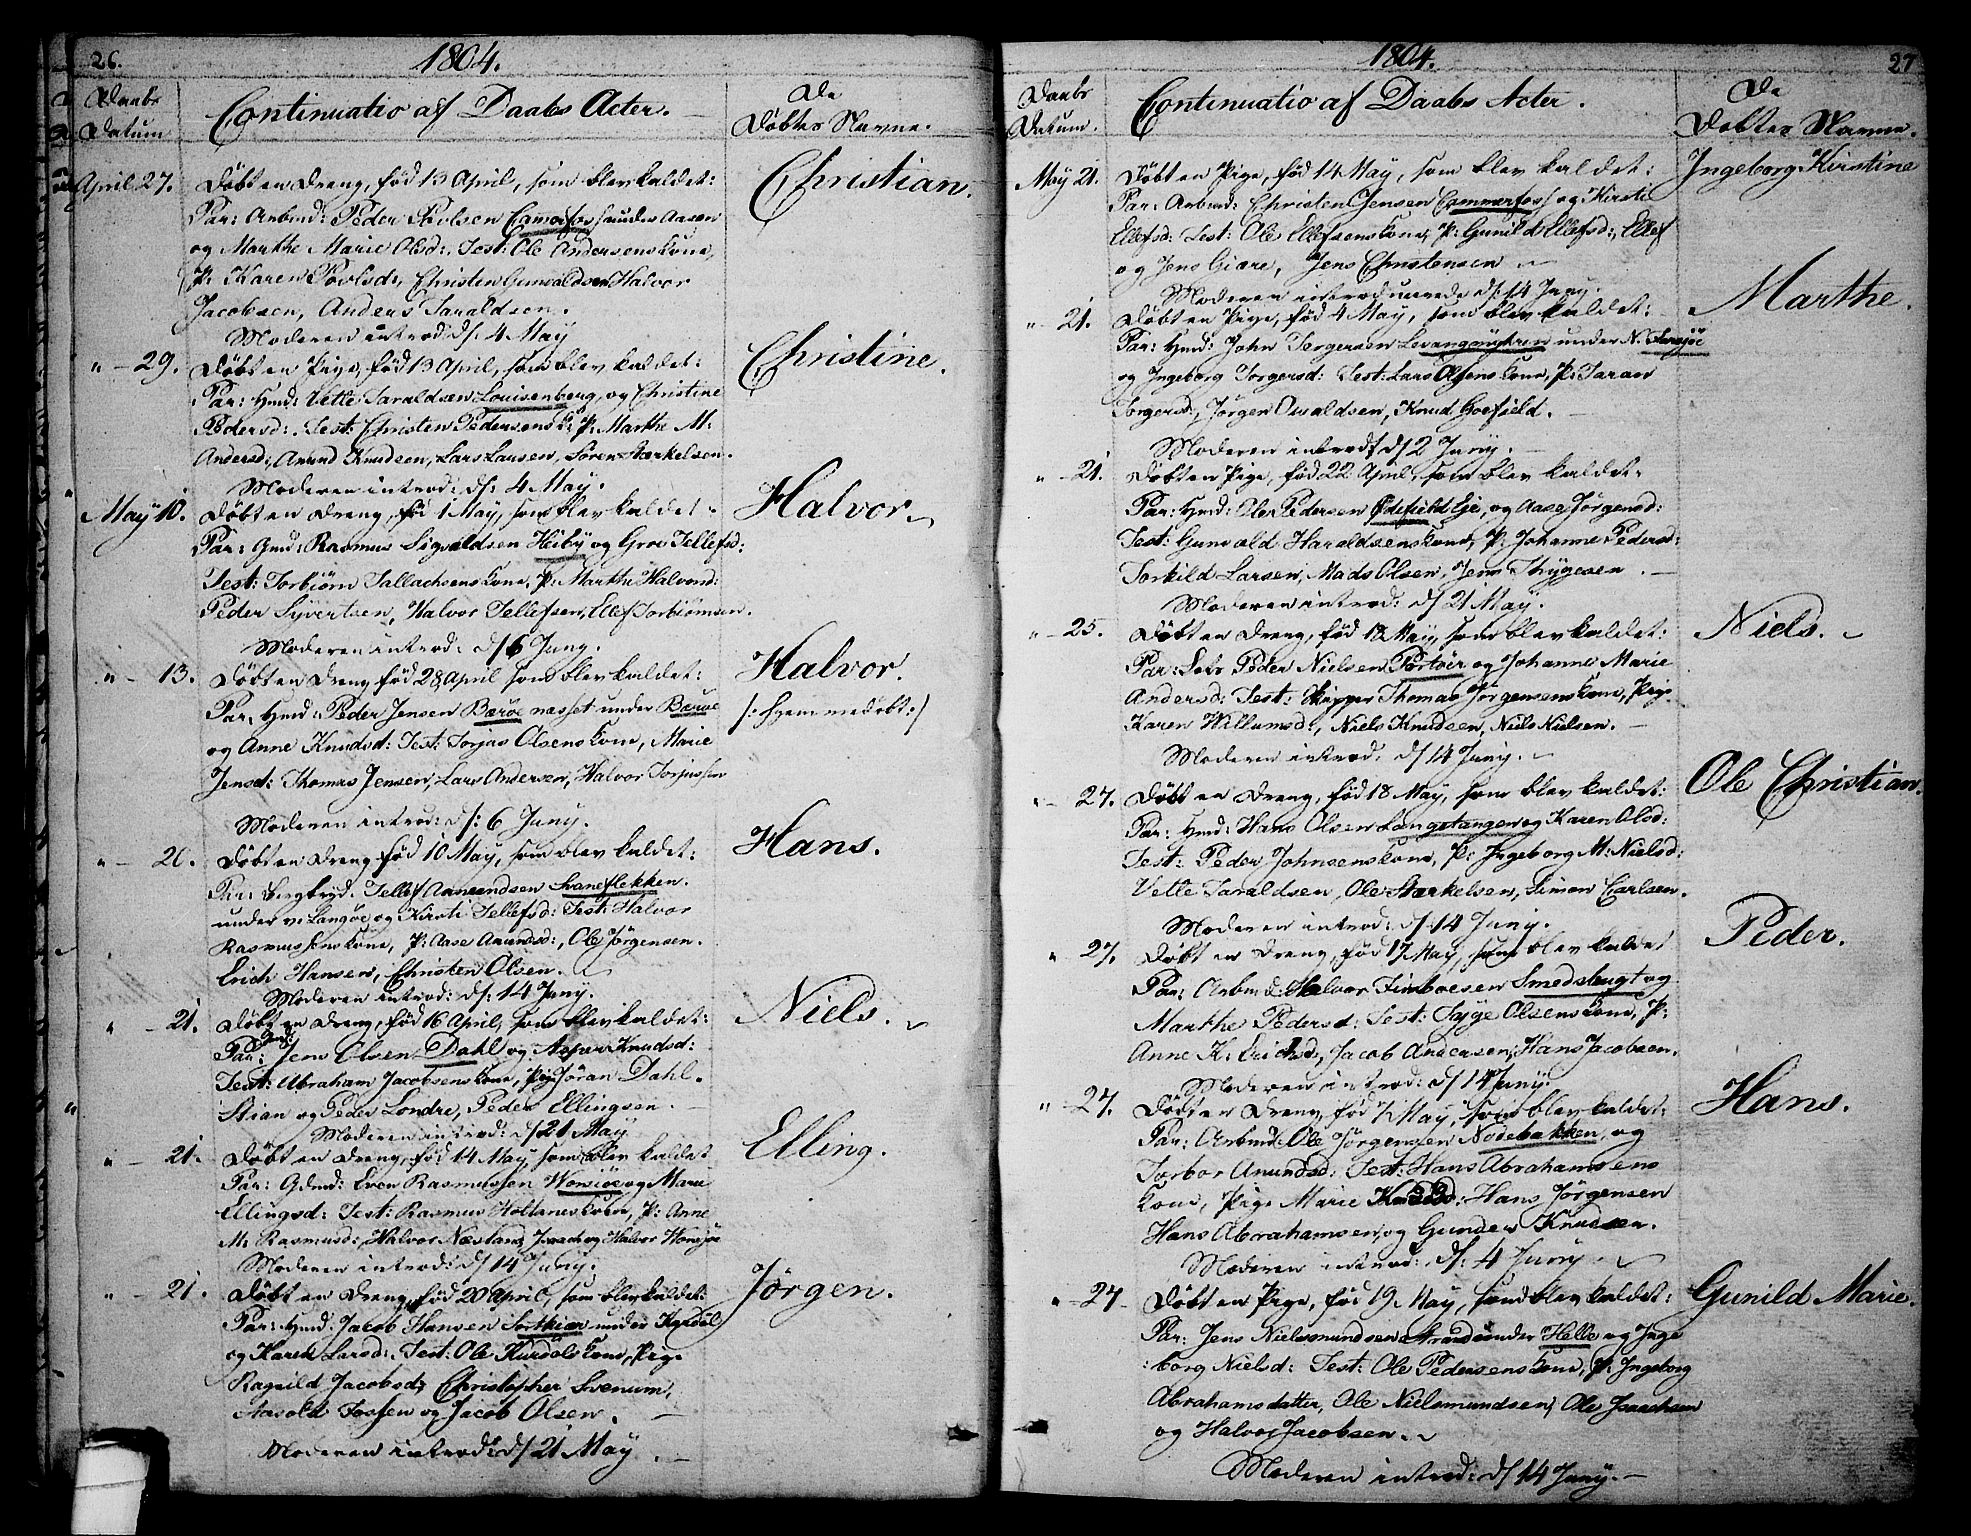 26.
1804.
Daabs
Datum
Continuatio af Daabs Acter.
De
Døbtes Navne.
April 27.
Døbt en Dreng, fød 13 April, som blev kaldet:
Christian.
Par: Arbmd: Peder Povlsen Camerfos under Aasen
og Marthe Marie Olsd: Test: Ole Andersens Kone,
P: Karen Povlsd:, Christen Gunvaldsen Halvor
Jacobsen, Anders Taraldsen.
Moderen introd: d/: 4 May
" - 29.
Døbt en Pige, fød 13 April, som blev kaldet:
Christine.
Par: Hmd: Vette Taraldsen Louisenberg, og Christine
Pedersd:. Test: Christen Pedersens K: P: Marthe M:
Andersd:, Amund Knudsen, Lars Lausen, Søren Stærkelsen.
Moderen introd: d/: 4 May.
May 10.
Døbt en Dreng, fød 1 May, som blev kaldet:
Halvor.
Par: Gmd: Rasmus Sigvaldsen Heiby og Groe Tellefsd:
Test: Torbiørn Tallachsens Kone, P: Marthe Halvorsd:
Peder Syvertsen, Halvor Tellefsen, Ellef Torbiørnsen.
Moderen introd: d/ 6 Juny.
" - 13.
Døbt en Dreng fød 28 April som blev kaldet:
Halvor.
Par. Hmd: Peder Jensen Barøe næsset under Barøe
/: hjemmedøbt :/
og Anne Knudsd: Test: Torjus Olsens Kone, Marie
Jensd: Thomas Jensen, Lars Andersen, Halvor Torjussen
Moderen introd: d/: 6 Juny.
" - 20.
Døbt en Dreng fød 10 May, som blev kaldet:
Hans.
Par: Bergbryd. Tellef Anundsen Svaneflekken.
under v: Langøe og Kirsti Tellefsd: Test: Halvor
Rasmussens Kone, P: Aase Anundsd:, Ole Jørgensen.
Erich Hansen, Christen Olsen.
Moderen introd: d/: 14 Juny.
" - 21.
Døbt en Dreng, fød 16 April, som blev kaldet:
Niels.
Par: Jens Olsen Dahl og Asper Knudsd:
Test: Abraham Jacobsens Kone, Pige Jøran Dahl.
Stian og Peder Londre, Peder Ellingsen.
Moderen introd: d/ 21 May
" - 21.
Døbt en Dreng, fød 14 May, som blev kaldet
Elling.
Par: Gdmd: Even Rasmussen Worsiøe og Marie
Ellingsd: Test: Rasmus Koltanes Kone, P: Anne
M: Rasmusd: Halvor Næstang, Isaach og Halvor Worsiøe
Moderen introd: d/ 14 Juny.
" - 21.
Døbt en Dreng, fød 20 April, som blev kaldet:
Jørgen.
Par: Hmd: Jacob Hansen Sortkiær under Kurdøl
og Karen Larsd: Test: Ole Kurdøls Kone, Pige
Ragnild Jacobsd; Christopher Svenum,
Aasold Fossen og Jacob Olsen.
Moderen introd: d/ 21 May.
1804.
27
Daabs
Datum.
Continuatio af Daabs Acter.
De
Døbtes Navne.
May 21.
Døbt en Pige, fød 14 May, som blev kaldet:
Ingeborg Kirstine
Par: Arbmd: Christen Jensen Cammerfos og Kirsti
Ellefsd: Test: Ole Ellefsens Kone, P: Gunild Ellefsd:, Ellef
og Jens Giære, Jens Christensen
Moderen introducerede d/: 14 Juny.
" - 21.
Døbt en Pige, fød 4 May, som blev kaldet:
Marthe.
Par: Hmd: John Tergersen Levangsmyhren under N.
og Ingeborg Torgersd: Test: Lars Olsens Kone, P: Taran
Torgersd:, Jørgen Osvaldsen, Knud Goefield.
Moderen introd/ d/ 2 Juny.
" - 21.
Døbt en Pige, fød 22 April, som blev kaldet:
Par: Hmd: Ole Pedersen Ødefield Eje, og Aase Jørgensd:
Test: Gunvald Haraldsens Kone, P: Johanne Pedersd:
Torkild Larsen, Mads Olsen, Jens Thygesen.
Moderen introd: d/ 21 May.
" - 25.
Døbt en Dreng, fød 18 May, som blev kaldet:
Niels.
Par: Lots Peder Nielsen Portøer og Johanne Marie
Andersd: Test: Skipper Thomas Jørgensens Kone, Pige
Karen Willumsd:, Niels Knudsen, Niels Nielsen.
Moderen introd. d/ 14 Juny.
" - 27.
Døbt en Dreng, fød 18 May, som blev kaldet:
Ole Christian.
Par: Hmd: Hans Olsen Langetangen og Karen Olsd:
Test: Peder Johnsens Kone, P: Ingeborg M: Nielsd:
Vette Taraldsen, Ole Stærkelsen, Simon Carlsen.
Moderen introd: d/: 14 Juny.
" - 27.
Døbt en Dreng, fød 17 May, som blev kaldet
Peder.
Par: Arbmd: Halvor Finboesen Smedsbugt og
Marthe Pedersd: Test: Tyge Olsens Kone, P:
Anne K: Erichsd, Jacob Andersen, Hans Jacobsen.
Moderen introd: d/ 14 Juny.
" - 27.
Døbt en Dreng, fød 7 May, som blev kaldet:
Hans.
Par: Arbmd: Ole Jørgensen Nødebakken, og
Torbor Anundsd: Test: Hans Abrahamsens
Kone, Pige Marie Knudsd: Hans Jørgensen
Hans Abrahamsen, og Gunder Knudsen.
Moderen introd: d/: 4 Juny
" - 27
Døbt en Pige, fød 19 May, som blev kaldet:
Gunild Marie.
Par: Jens Nielsmundsen Strand under Helle og Inge
:borg Nielsd: Test: Ole Pedersens Kone, P: Ingeborg
Abrahamsdatter, Ole Nielsmundsen, Ole Isaachsen
og Halvor Jacobsen.
Moderen introd: d/ 14 Juny.